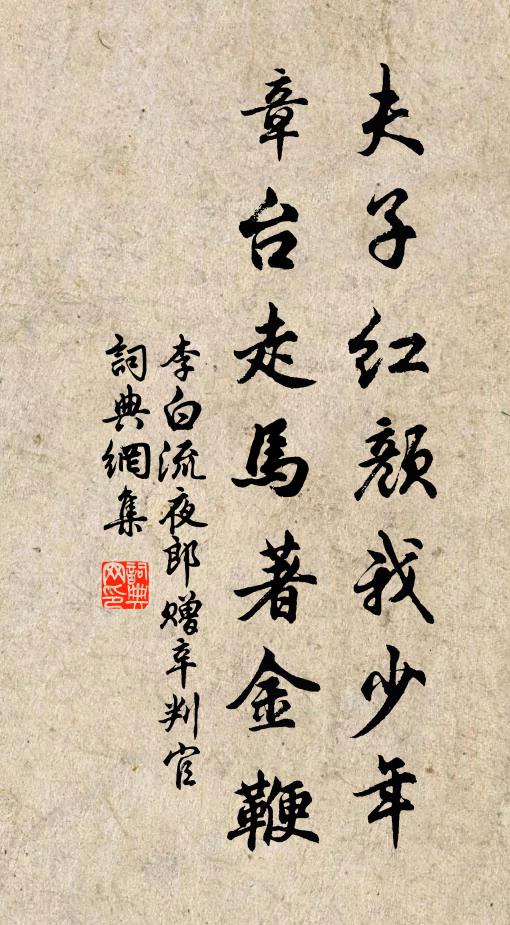 夫子红颜我少年
章台走馬著金鞭
李白流夜郎赠辛判官
詞典網集
詞典网印